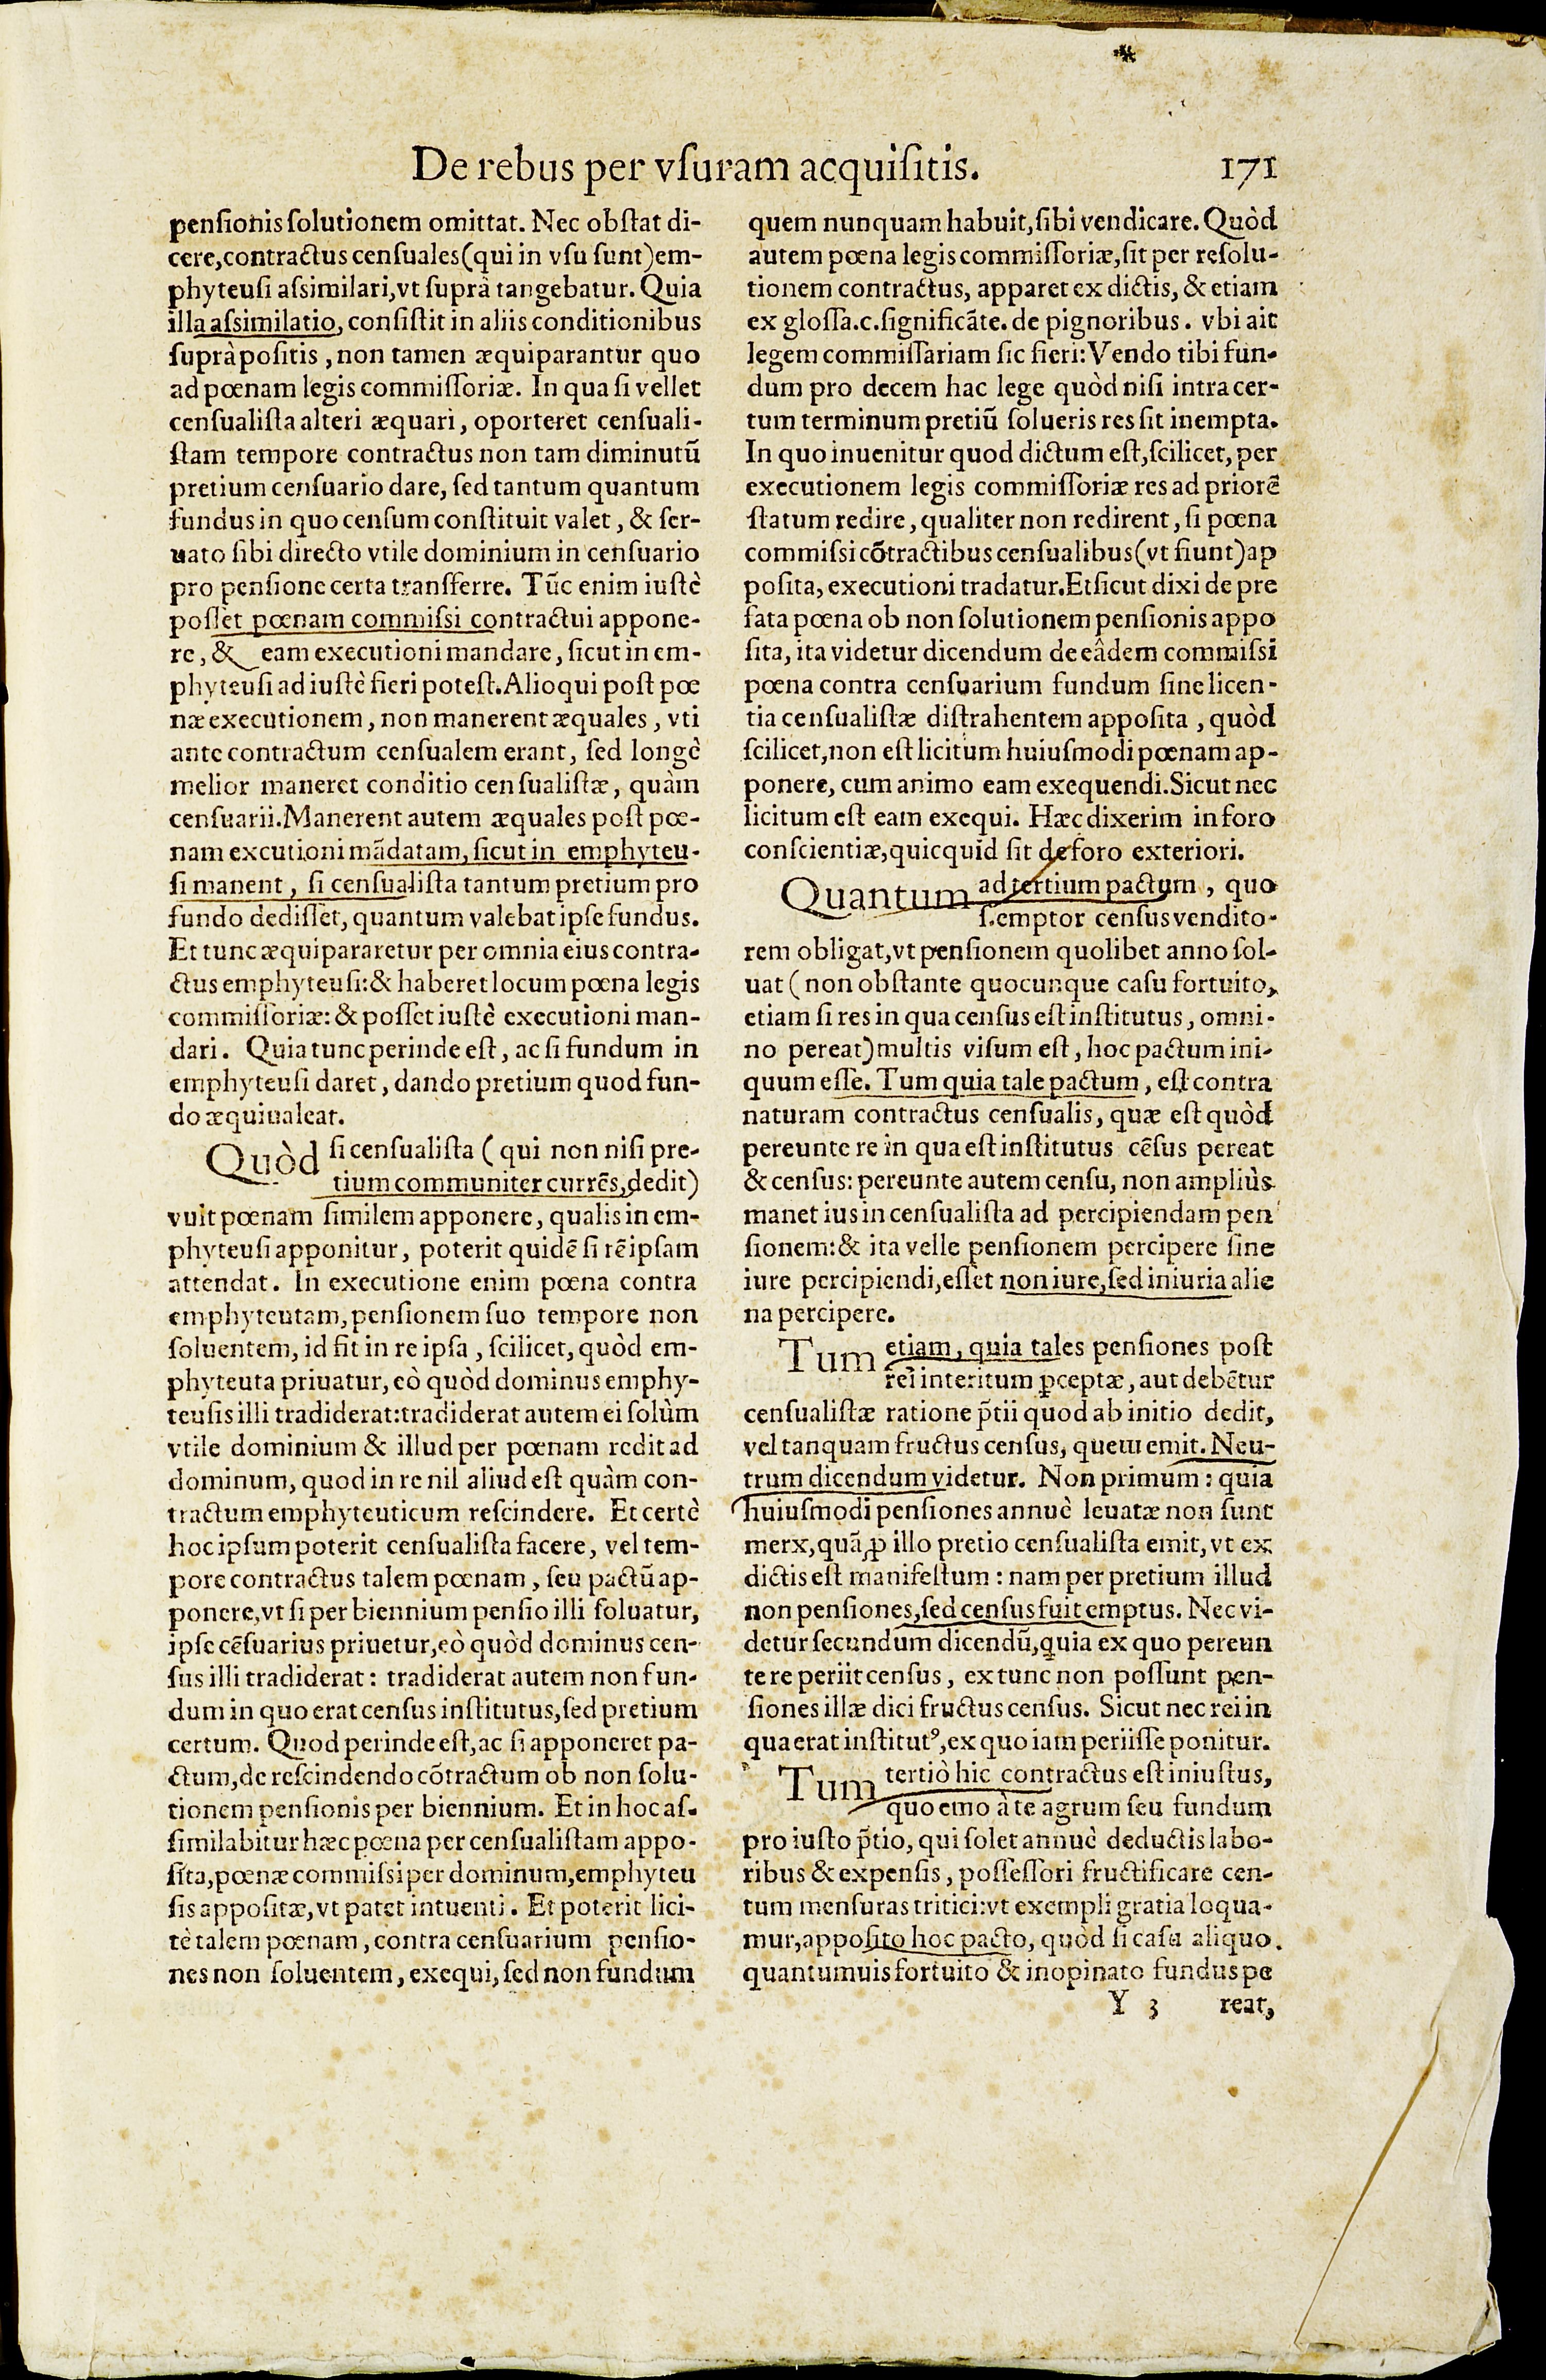 De rebus per vſuram acquiſitis. 171
penſionis ſolutionem omittat. Nec obſtat di-
cere, contractus cenſuales (qui in vſu ſunt) em-
phyteuſi aſsimilari, vt ſuprà tangebatur. Quia
illa aſsimilatio, conſiſtit in aliis conditionibus
ſuprà poſitis, non tamen æquiparantur quo
ad pœnam legis commiſſoriæ. In qua ſi vellet
cenſualiſta alteri æquari, oporteret cenſuali-
ſtam tempore contractus non tam diminutũ
pretium cenſuario dare, ſed tantum quantum
fundus in quo cenſum conſtituit valet, & ſer-
uato ſibi directo vtile dominium in cenſuario
pro penſione certa transferre. Tũc enim iuſtè
poſſet pœnam commiſsi contractui appone-
re, & eam executioni mandare, ſicut in em-
phyteuſi ad iuſtè fieri poteſt. Alioqui poſt pœ
næ executionem, non manerent æquales, vti
ante contractum cenſualem erant, ſed longè
melior maneret conditio cenſualiſtæ, quàm
cenſuarii. Manerent autem æquales poſt pœ-
nam excutioni mãdatam, ſicut in emphyteu-
ſi manent, ſi cenſualiſta tantum pretium pro
fundo dediſſet, quantum valebat ipſe fundus.
Et tunc æquipararetur per omnia eius contra-
ctus emphyteuſi: & haberet locum pœna legis
commiſſoriæ: & poſſet iuſtè executioni man-
dari. Quia tunc perinde eſt, ac ſi fundum in
emphyteuſi daret, dando pretium quod fun-
do æquiualeat.
Quòd ſi cenſualiſta (qui non niſi pre-
tium communiter currẽs, dedit)
vuit pœnam ſimilem apponere, qualis in em-
phyteuſi apponitur, poterit quidẽ ſi rẽ ipſam
attendat. In executione enim pœna contra
emphyteutam, penſionem ſuo tempore non
ſoluentem, id fit in re ipſa, ſcilicet, quòd em-
phyteuta priuatur, eò quòd dominus emphy-
teuſis illi tradiderat: tradiderat autem ei ſolùm
vtile dominium & illud per pœnam redit ad
dominum, quod in re nil aliud eſt quàm con-
tractum emphyteuticum reſcindere. Et certè
hoc ipſum poterit cenſualiſta facere, vel tem-
pore contractus talem pœnam, ſeu pactũ ap-
ponere, vt ſi per biennium penſio illi ſoluatur,
ipſe cẽſuarius priuetur, eò quòd dominus cen-
ſus illi tradiderat: tradiderat autem non fun-
dum in quo erat cenſus inſtitutus, ſed pretium
certum. Quod perinde eſt, ac ſi apponeret pa-
ctum, de reſcindendo cõtractum ob non ſolu-
tionem penſionis per biennium. Et in hoc aſ-
ſimilabitur hæc pœna per cenſualiſtam appo-
ſita, pœnæ commiſsi per dominum, emphyteu
ſis appoſitæ, vt patet intuenti. Et poterit lici-
tè talem pœnam, contra cenſuarium penſio-
nes non ſoluentem, exequi, ſed non fundum
quem nunquam habuit, ſibi vendicare. Quòd
autem pœna legis commiſſoriæ, ſit per reſolu-
tionem contractus, apparet ex dictis, & etiam
ex gloſſa. c. ſignificãte. de pignoribus. vbi ait
legem commiſſariam ſic fieri: Vendo tibi fun-
dum pro decem hac lege quòd niſi intra cer-
tum terminum pretiũ ſolueris res ſit inempta.
In quo inuenitur quod dictum eſt, ſcilicet, per
executionem legis commiſſoriæ res ad priorẽ
ſtatum redire, qualiter non redirent, ſi pœna
commiſsi cõtractibus cenſualibus (vt fiunt) ap
poſita, executioni tradatur. Et ſicut dixi de pre
fata pœna ob non ſolutionem penſionis appo
ſita, ita videtur dicendum de eâdem commiſsi
pœna contra cenſuarium fundum ſine licen-
tia cenſualiſtæ diſtrahentem appoſita, quòd
ſcilicet, non eſt licitum huiuſmodi pœnam ap-
ponere, cum animo eam exequendi. Sicut nec
licitum eſt eam exequi. Hæc dixerim in foro
conſcientiæ, quicquid ſit de foro exteriori.
Quantum ad tertium pactum, quo
ſ. emptor cenſus vendito-
rem obligat, vt penſionem quolibet anno ſol-
uat (non obſtante quocunque caſu fortuito,
etiam ſi res in qua cenſus eſt inſtitutus, omni-
no pereat) multis viſum eſt, hoc pactum ini-
quum eſſe. Tum quia tale pactum, eſt contra
naturam contractus cenſualis, quæ eſt quòd
pereunte re in qua eſt inſtitutus cẽſus pereat
& cenſus: pereunte autem cenſu, non ampliùs
manet ius in cenſualiſta ad percipiendam pen
ſionem: & ita velle penſionem percipere ſine
iure percipiendi, eſſet non iure, ſed iniuria alie
na percipere.
Tum etiam, quia tales penſiones poſt
rei interitum ꝑceptæ, aut debẽtur
cenſualiſtæ ratione p̃tii quod ab initio dedit,
vel tanquam fructus cenſus, quem emit. Neu-
trum dicendum videtur. Non primum: quia
huiuſmodi penſiones annuè leuatæ non ſunt
merx, quã ꝓ illo pretio cenſualiſta emit, vt ex
dictis eſt manifeſtum: nam per pretium illud
non penſiones, ſed cenſus fuit emptus. Nec vi-
detur ſecundum dicendũ, quia ex quo pereun
te re periit cenſus, ex tunc non poſſunt pen-
ſiones illæ dici fructus cenſus. Sicut nec rei in
qua erat inſtitutꝰ, ex quo iam periiſſe ponitur.
Tum tertiò hic contractus eſt iniuſtus,
quo emo à te agrum ſeu fundum
pro iuſto p̃tio, qui ſolet annuè deductis labo-
ribus & expenſis, poſſeſſori fructificare cen-
tum menſuras tritici: vt exempli gratia loqua-
mur, appoſito hoc pacto, quòd ſi caſu aliquo
quantumuis fortuito & inopinato fundus pe
Y 3 reat,